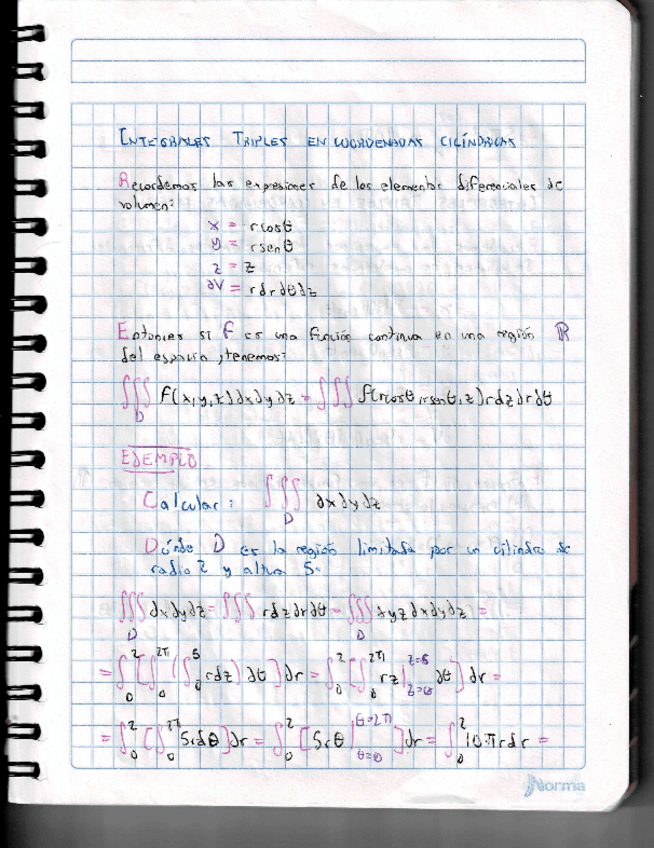 INTEGRALES TRIPLES EN COORDENADAS CILÍNDRICAS
Recordemos las expresiones de los elementos diferenciales de
volumen:
x = rcosθ
y = rsenθ
z = z
∂V = rdrdθdz
Entonces si f es una función continua en una región R
del espacio, tenemos:
∭_D f(x,y,z)dxdydz = ∭ f(rcosθ,rsenθ,z)rdzdrdθ
EJEMPLO
Calcular: ∭_D dxdydz
Dónde D es la región limitada por un cilindro de
radio 2 y altura 5.
∭_D dxdydz = ∭ rdzdrdθ = ∭_D xyzdxdydz =
= ∫_0^2 [∫_0^2π (∫_0^5 rdz) dθ] dr = ∫_0^2 [∫_0^2π rz |_{z=0}^{z=5} dθ] dr =
= ∫_0^2 [∫_0^2π 5rdθ]dr = ∫_0^2 [5rθ |_{θ=0}^{θ=2π}]dr = ∫_0^2 10πrdr =
Norma